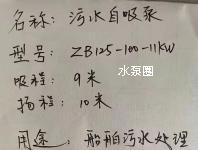 名称：污水自吸泵
型号：ZB125-100-11KW
吸程：9米
水泵圈
扬程：10米
用途：船舶污水处理